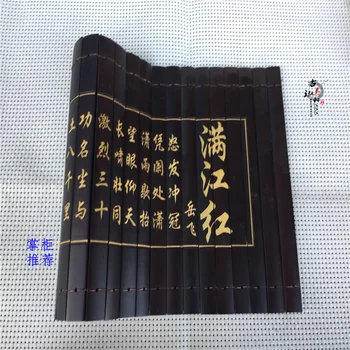 满江红
岳飞
怒发冲冠
凭阑处潇
潇雨歇抬
望眼仰天
长啸壮怀
激烈三十
功名尘与
土八千里
掌柜
推荐